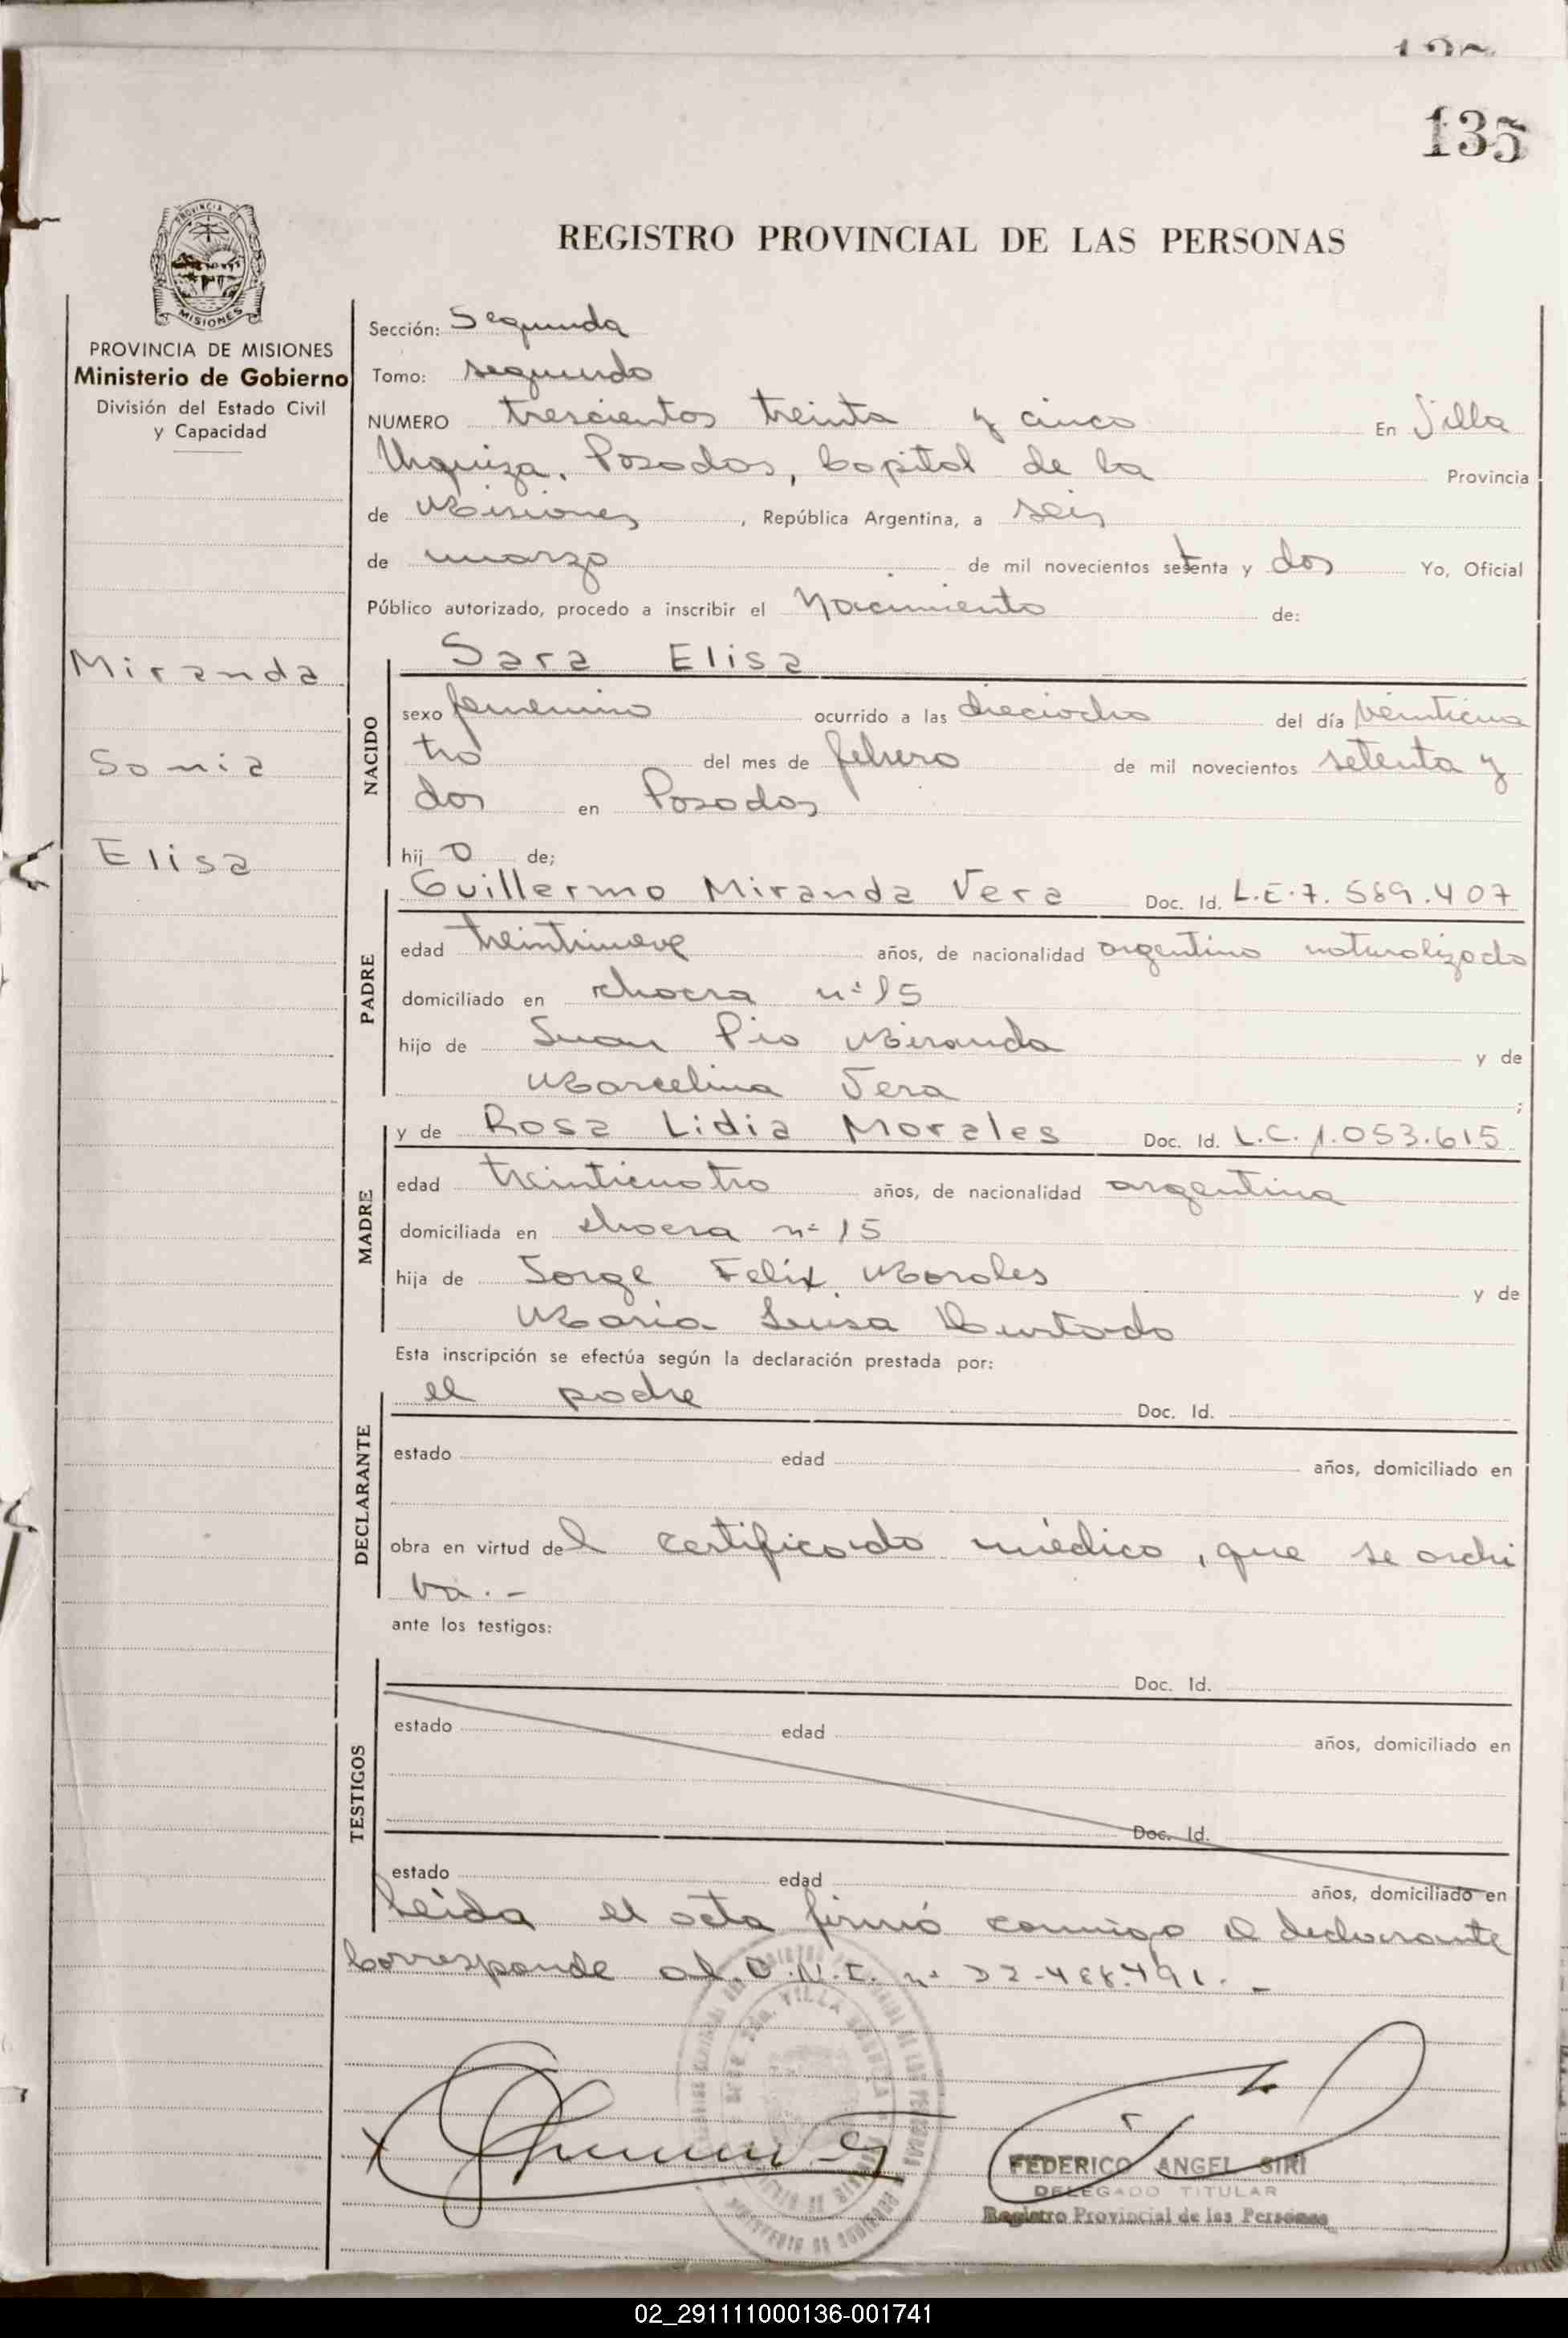 135
REGISTRO PROVINCIAL DE LAS PERSONAS
MISIONES
PROVINCIA DE MISIONES
Ministerio de Gobierno
División del Estado Civil
y Capacidad
Miranda
Sonia
Elisa
Sección: Segunda
Tomo: segundo
NUMERO trescientos treinta y cinco En Villa
Urquiza, Posadas, Capital de la Provincia
de Misiones, República Argentina, a seis
de marzo de mil novecientos setenta y dos Yo, Oficial
Público autorizado, procedo a inscribir el Nacimiento de:
NACIDO
Sara Elisa
sexo femenino ocurrido a las dieciocho del día veinticua
tro del mes de febrero de mil novecientos setenta y
dos en Posadas
hij o de;
PADRE
Guillermo Miranda Vera Doc. Id. L.E. 7.569.407
edad treintinueve años, de nacionalidad argentino naturalizado
domiciliado en chacra nº 15
hijo de Juan Pio Miranda y de
Marcelina Vera ;
MADRE
y de Rosa Lidia Morales Doc. Id. L.C. 1.053.615
edad treinticuatro años, de nacionalidad argentina
domiciliada en chacra nº 15
hija de Jorge Felix Morales y de
Maria Luisa
Esta inscripción se efectúa según la declaración prestada por:
DECLARANTE
el padre Doc. Id.
estado edad años, domiciliado en
obra en virtud del certificado médico, que se archi
va.-
ante los testigos:
TESTIGOS
Doc. Id.
estado edad años, domiciliado en
Doc. Id.
estado edad años, domiciliado en
Leida el acta firmó conmigo el declarante
Corresponde al D.N.I. nº 22.488.491.-
FEDERICO ANGEL SIRI
DELEGADO TITULAR
Registro Provincial de las Personas
02_291111000136-001741